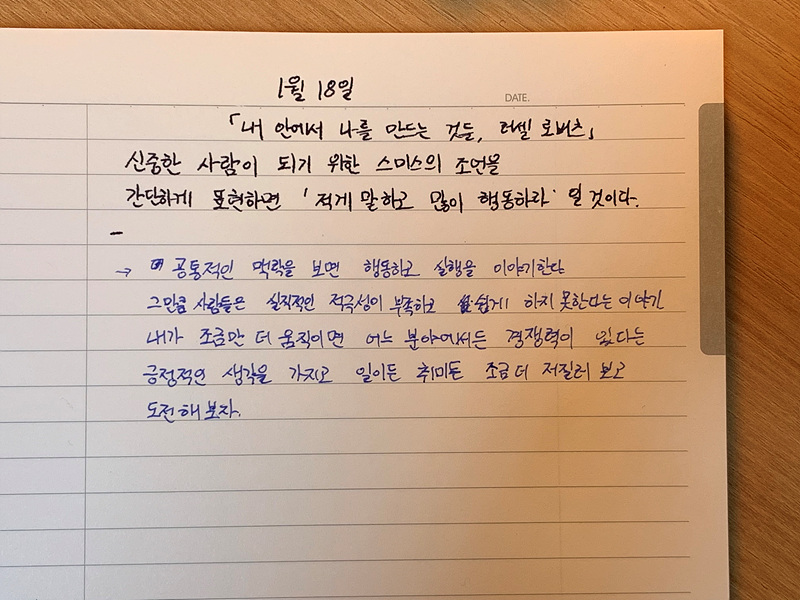 1월 18일
DATE.
「내 안에서 나를 만드는 것들, 러셀 로버츠」
신중한 사람이 되기 위한 스미스의 조언을
간단하게 표현하면 '적게 말하고 많이 행동하라' 일 것이다.
-
→ 공통적인 맥락을 보면 행동하고 실행을 이야기한다
그만큼 사람들은 실직적인 적극성이 부족하고 쉽게 하지 못한다는 이야기
내가 조금만 더 움직이면 어느 분야에서든 경쟁력이 있다는
긍정적인 생각을 가지고 일이든 취미든 조금 더 저질러 보고
도전해보자.